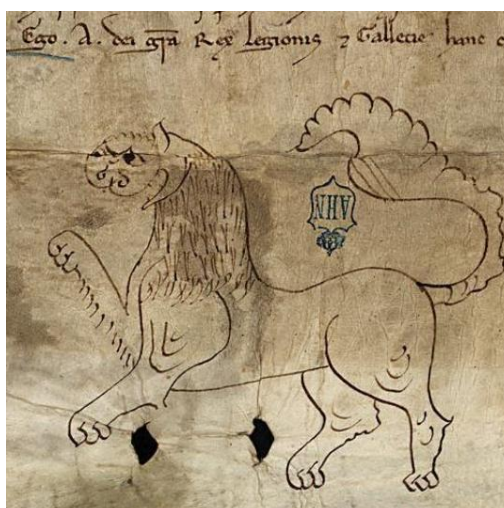 Ego. A. dei gr̃a Rex legionis ⁊ Gallecie hanc
AHN